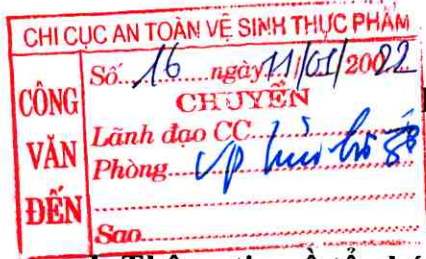 CHI CỤC AN TOÀN VỆ SINH THỰC PHẨM
CÔNG VĂN ĐẾN
Số 16 ngày 11/01/2022
CHUYỂN
Lãnh đạo CC
Phòng VP lưu hồ sơ
Sao